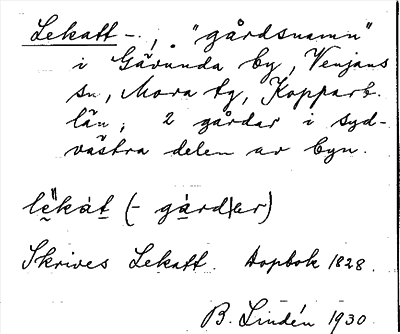 Lekatt-, "gårdsnamn"
i Gävunda by, Venjans
sn, Mora tg, Kopparb.
län; 2 gårdar i syd-
västra delen av byn.
lèkàt (- gàrd|er)
Skrives Lekatt. Dopbok 1828.
B. Lindén 1930.